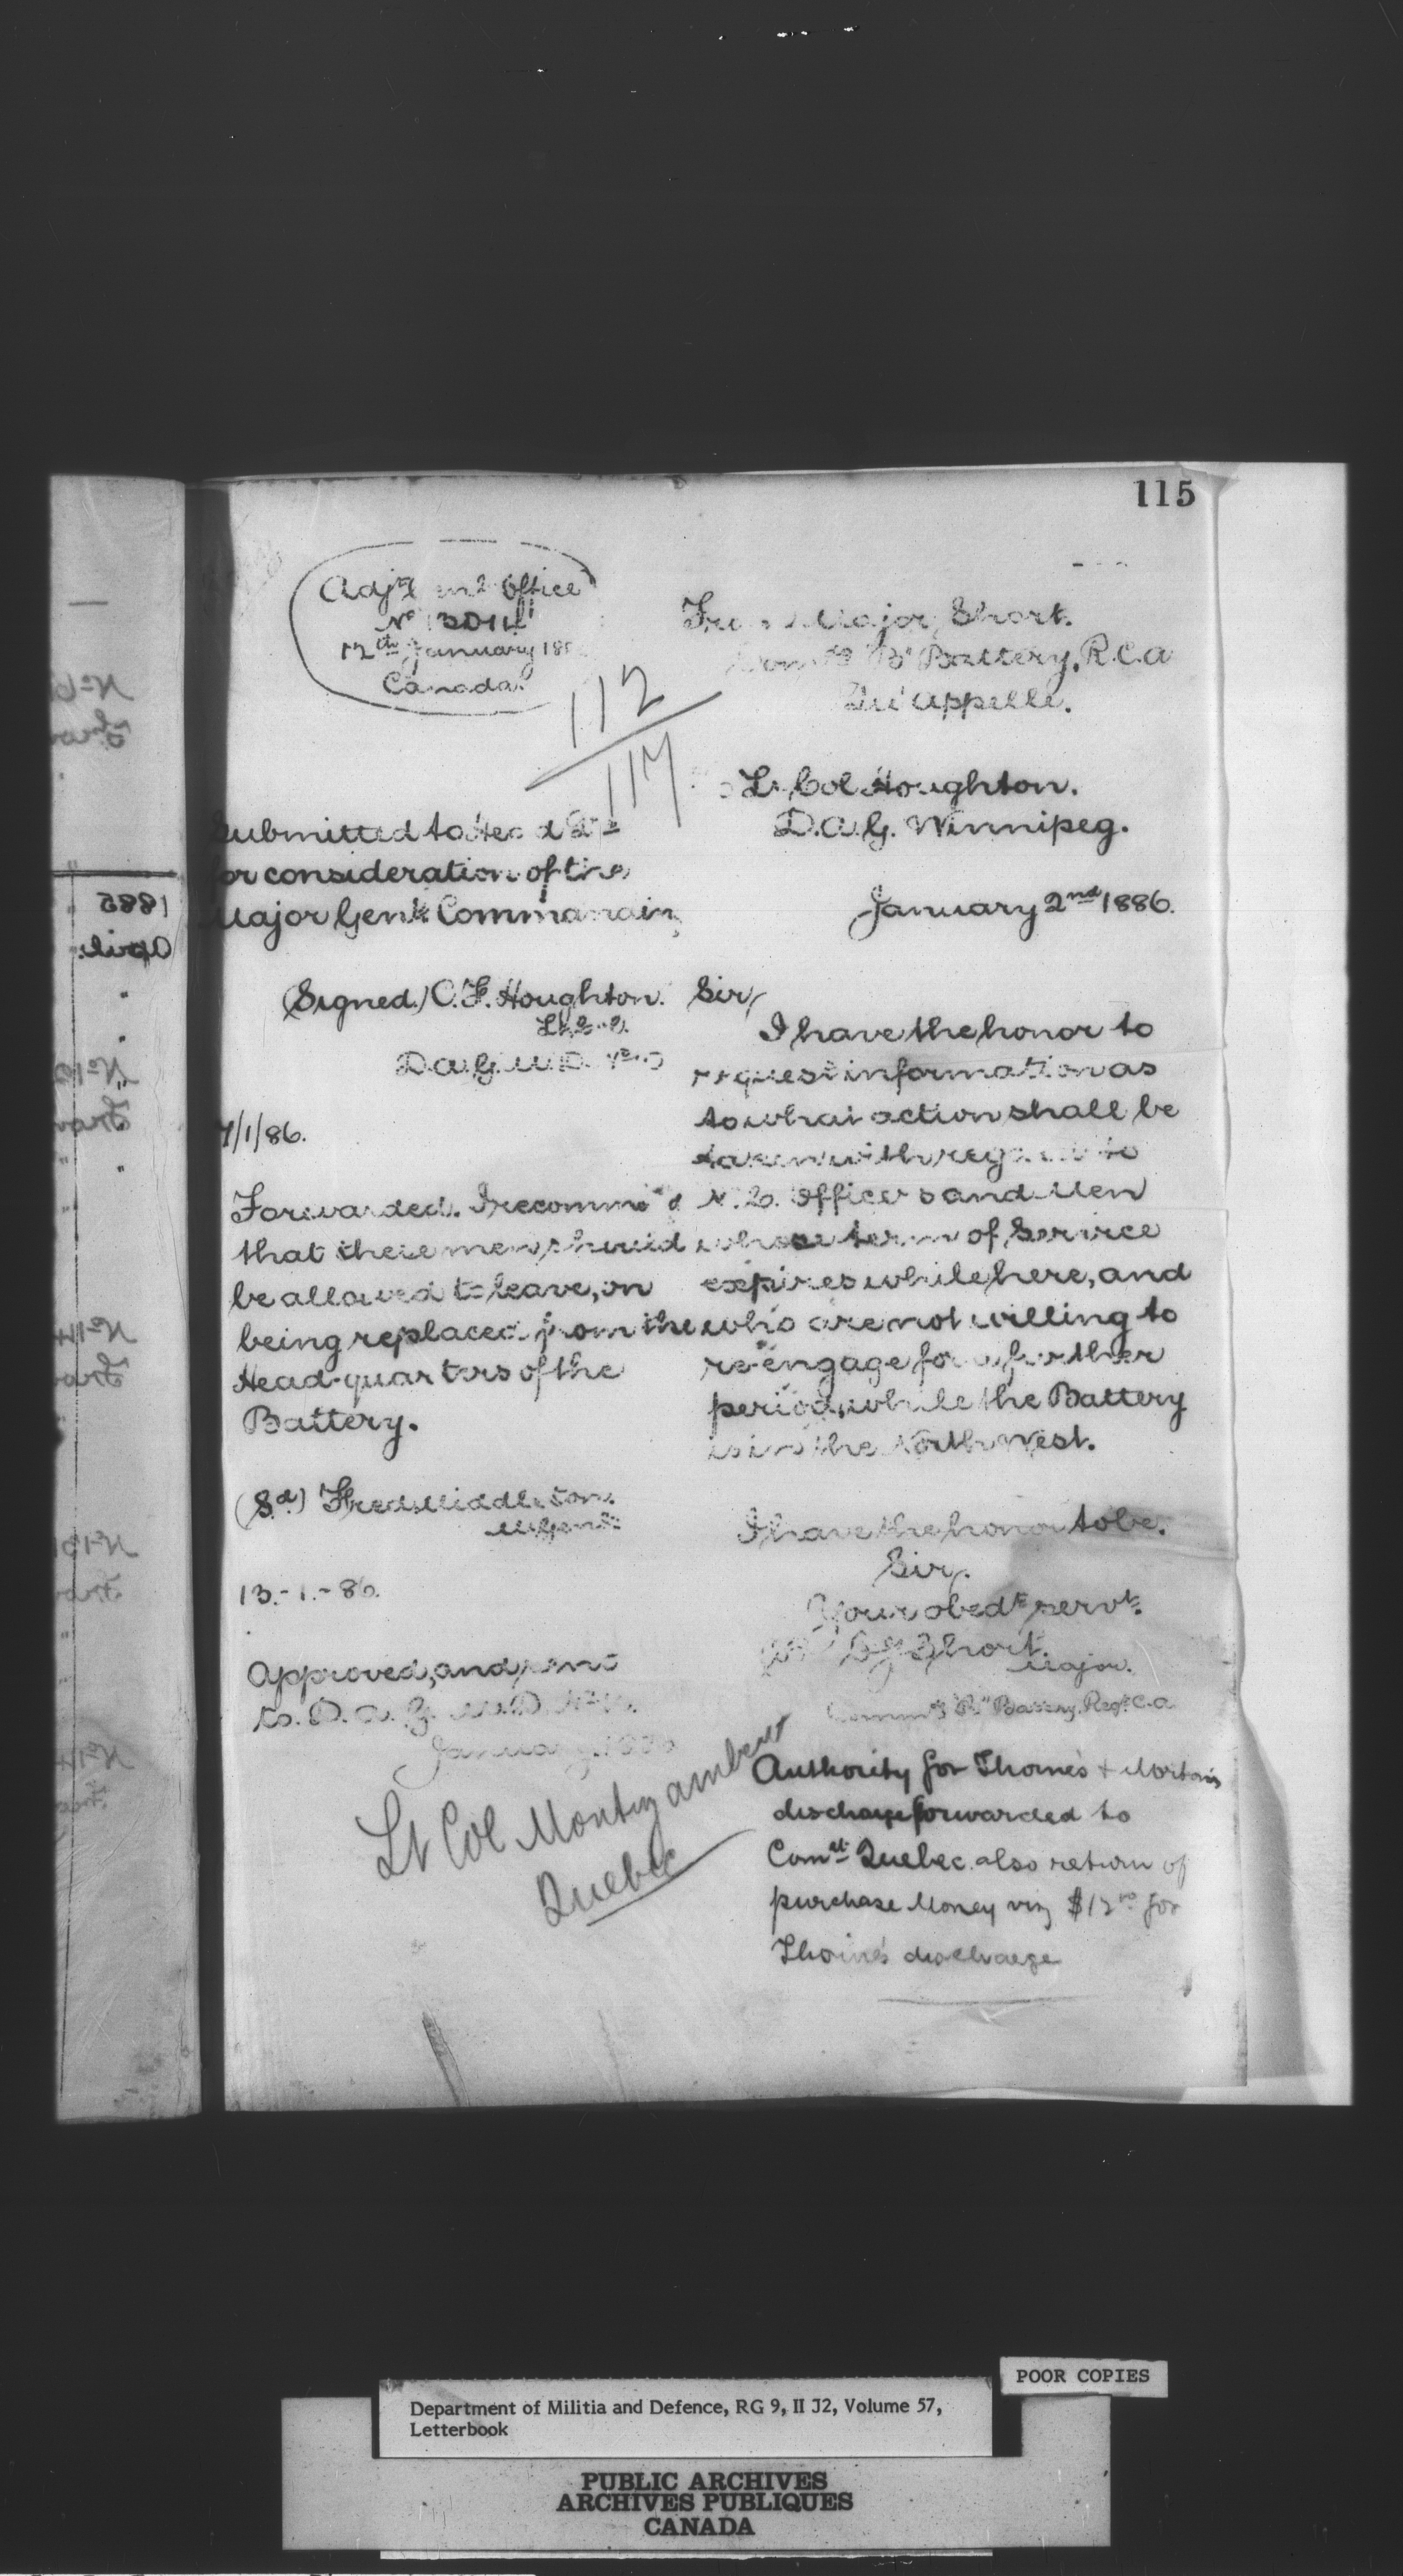 115
Office
12th January 188
Canada.
112
117
Major Short.
"B" Battery, R.C.A
Qu'Appelle.
Lt. Col Houghton.
D.A.G. Winnipeg.
January 2nd 1886.
Submitted to Head Qrs
for consideration of the
Major Genl. Commanding
(Signed.) C.F. Houghton.
Lt. Col.
D.A.G. M.D.
7/1/86.
Forwarded. I recommend
that these men should
be allowed to leave, on
being replaced from the
Head-quarters of the
Battery.
(Sd) Fred Middleton.
M Genl.
13.-1.-86.
Approved, and sent
to D.A.G. M.D.
January, 1886
Lt Col Montizambert
Quebec
Sir,
I have the honor to
request information as
to what action shall be
taken with regard to
N.C. Officers and Men
whose term of Service
expires while here, and
who are not willing to
re-engage for a further
period, while the Battery
is in the North West.
I have the honor to be.
Sir,
Your obedt servt.
Short.
Major.
Commg "B" Battery, Regt. C.A
Authority for Thoine's + Morton's
discharge forwarded to
Comdt Quebec also return of
purchase Money viz $12 for
Thoine's discharge
1885
April
POOR COPIES
Department of Militia and Defence, RG 9, II J2, Volume 57,
Letterbook
PUBLIC ARCHIVES
ARCHIVES PUBLIQUES
CANADA